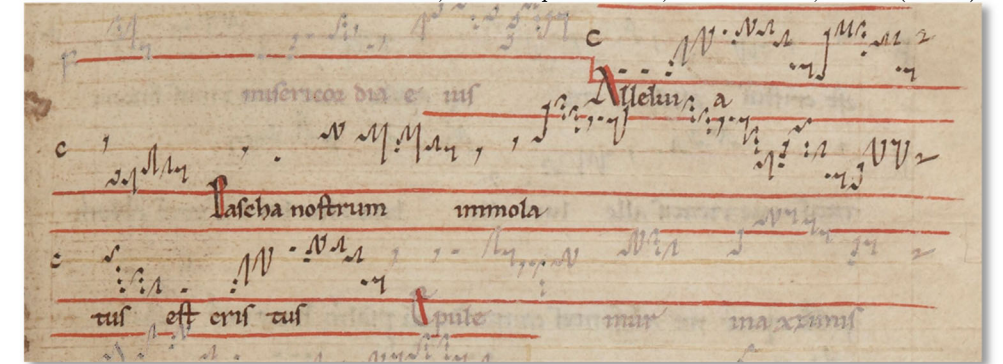 misericor dia e ius
C
Alleluia a
C
Pascha nostrum immola
C
tus est cris tus Epule mur in a xximis